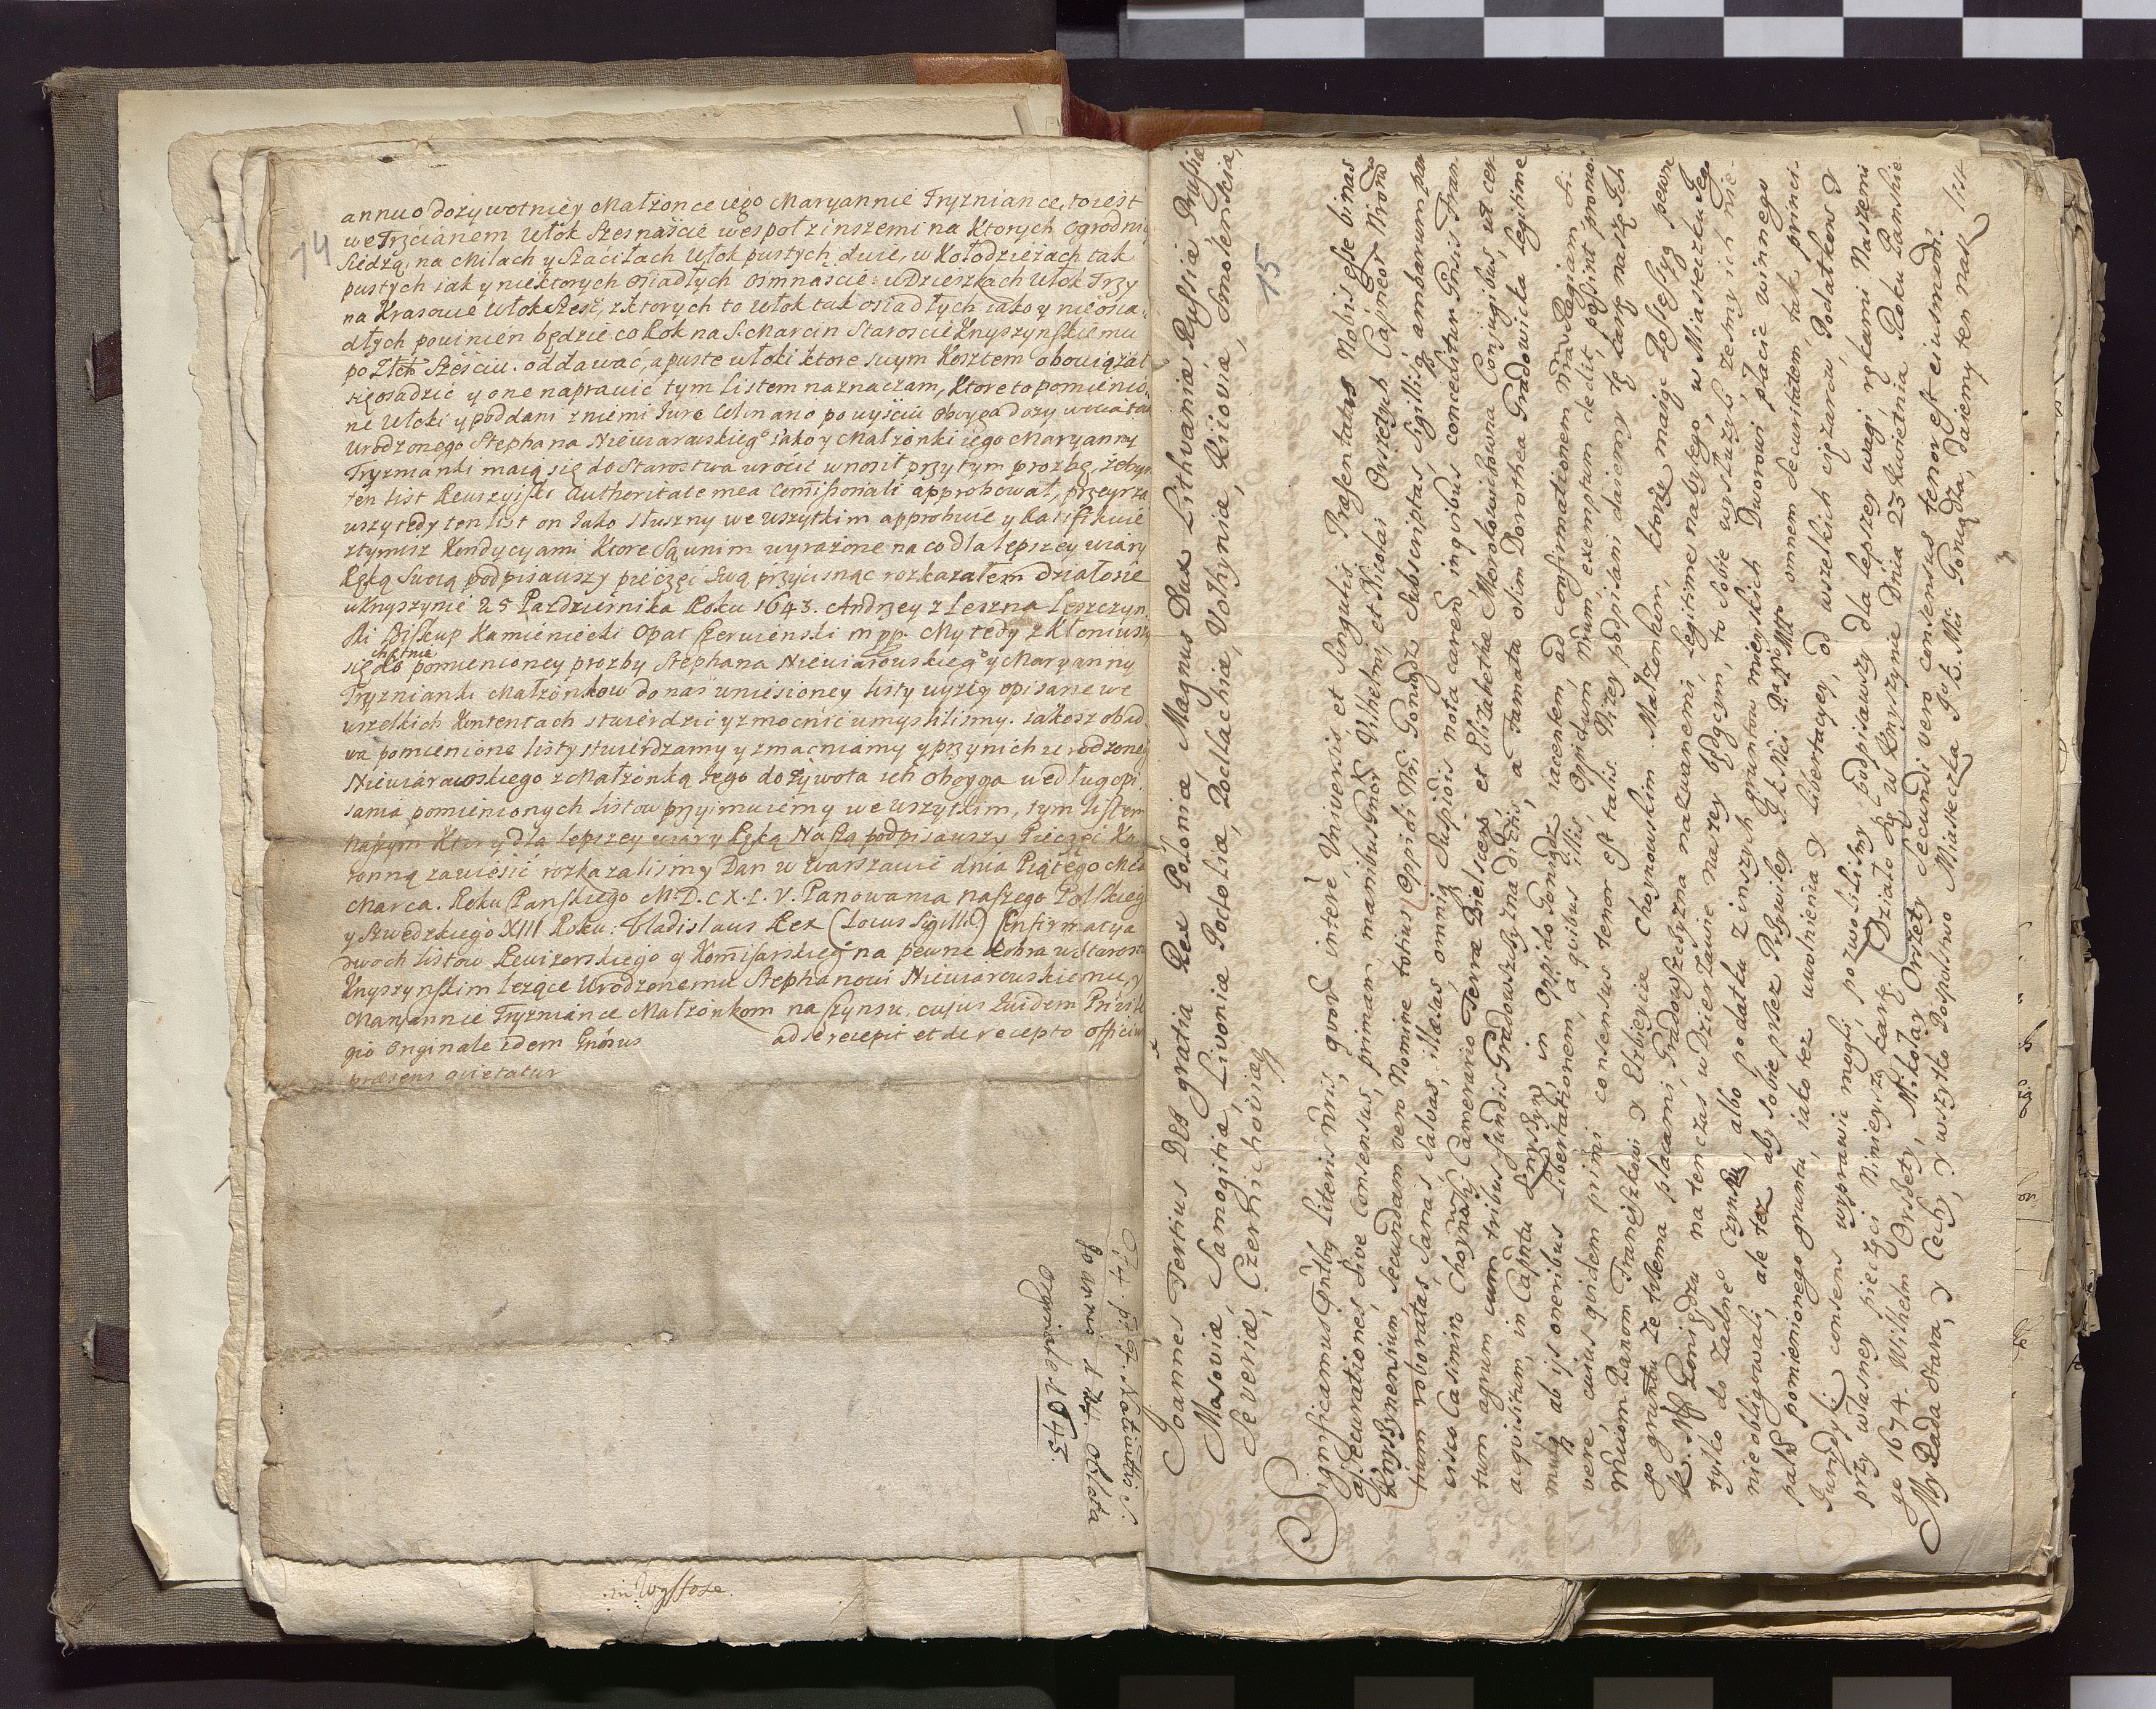 14
annuo dożywotniey Małżonce iego Maryannie Tryzniance, to iest
we Trzcianem Włok Szesnaście wespoł z inszemi na ktorych ogrodni
siedzą, na Milach y Szaciłach Włok pustych dwie, w Kołodzieżach tak
pustych iak y niektorych osiadłych osmnaście: w Dzieszkach Włok Trzy
na Krasowie Włok Sześć, z ktorych to Włok tak osiadłych iako y nieosia
dłych powinien będzie co Rok na S. Marcin Staroscie Knyszynskiemu
po Złch Sześciu. oddawać, a puste włoki ktore swym Kosztem obowiązał
się osadzić y one naprawić tym listem naznaczam, Ktore to pomienio
ne Włoki y poddani z niemi Jure
Urodzonego Stephana Niewiarowskiego iako y Małżonki iego Maryanny
Tryznianki maią się do Starostwa wrócić wnosił przy tym prozbę, żebym
ten list Rewizyiski Authoritate mea Commissoriali approbował, przeyrza
wszy tedy ten list on Jako słuszny we wszytkim approbuie y Ratifikuie
z tymisz Kondycyami Ktore są w nim wyrażone na co dla lepszey wiary
Ręką Swoią podpisawszy pieczęć swą przycisnąc rozkazałem Działo się
w Knyszynie 25 Pazdziernika Roku 1643. Andrzey z Leszna Leszczyn
ski Biskup Kamieniecki Opat Czerwienski mpp. My tedy z Kłoniwszy
się chętnie do pomienioney prozby Stephana Niewiarowskiego y Maryanny
Tryznianki Małżonkow do nas wniesioney listy wyżey opisane we
wszelkich Kontentach stwierdzić y zmocnić umyslilismy. iakosz obad
wa pomienione listy stwierdzamy y zmacniamy y przy nich urodzone
Niewiarowskiego z Małżonką Jego dożywota ich oboyga według opi
sania pomienionych listow przyimuiemy we wszytkim, tym listem
naszym Ktory dla lepszey wiary Ręką Naszą podpisawszy Pieczęć Ko
ronną zawiesić rozkazalismy Dan w Warszawie dnia Piątego Mca
Marca. Roku Panskiego M.D.C.X.L.V. Panowania naszego Polskieg
y Szwedzkiego XIII Roku: Vladislaus Rex (Locus Sigilli) Confirmatya
dwoch listow Rewizorskiego y Komisarskieg na pewne Dobra w Starost
Knyszynskim leżące Urodzonemu Stephanowi Niewiarowskiemu, y
Maryannie Tryzniance Małżonkom na Czynsu, cuius quidem Privile
gio originale idem Gnosus ad se recepit et de recepto officium
præsens quietatur
originale d 1645.
in Wyssoxe.
15
Joannes Tertius DEI gratia Rex Poloniæ Magnus Dux Lithvaniæ Russiæ Prussiæ
Masoviæ, Samogitiæ, Livoniæ Podoliæ, Podlachiæ, Volhyniæ, Kiioviæ, Smolenskiæ,
Severiæ, Czernichoviæq
Significamus Pntibq literis nris, quorū interē, Universis et Singulis. Præsentatas Nobis esse binas
assecurationes, sive Consensus, primam, manibus Gnor Vilhelmi, et Nicolai Orsetych Capneor Nrorū
Knyszynensium, secundam vero Nomine totius Oppidi Nri Goniądz Subscriptas, Sigillisq ambarum par
tium roboratas, sanas, salvas, illæsas, omniq suspiōis nota carens inquibus conceditur Gnsis Fran
cisco Casimiro Choynowski Camerario Terræ Bielscens, et Elizabetha Mrokowichowna Conjugibus, ut cer
tum agrum cum tribus fundis Gradowszczyzna dictis, a Famata olim Dorothea Gradowicka legitime
acquisitum, in Capntu Knyszyn, in Oppido Goniądz iacentem, ad confirmationem nrā Regiam, li
mitiq ab ijs oneribus Libertationem, a quibus illis, Oppidum Nrum exemptum dedit, possint promo
vere, cuius quidem primi consensus tenor est talis. Niżey podpisani daiemy tę kartę naszę Ich
Mściom Panom Franciszkowi y Elzbiecie Choynowskim Małżonkom, ktorzy maiąc Possessyą pewne
go gruntu ze trzema placami, Gradowszczyzna nazwanemi, legitime nabytego, w Miasteczku Jego
K. Mści Goniądzu na ten czas w Dzierżawie naszey będącym, to Sobie wysłużyli, żesmy ich nie
tylko do żadne Czynszu, albo podatku z inszych gruntow mieyskich Dworowi płacić winnego
nie obligowali, ale też aby sobie przez Przywiley J. K. Mci Pa. N. Mo omnem securitatem, tak princi
palis pomienionego gruntu, iako też uwolnienia y libertacyey, od wszelkich ciężarow, Podatkow y
Jurydyki consens wyprawić mogli, pozwolilismy podpisawszy dla lepszey wagi rękami Naszemi
przy własney pieczęci Ninieyszą kartę. Działo się w Knyszynie Dnia 23 Kwietnia Roku Panskie
go 1674. Wilhelm Orsety, Mikołay Orsety Secundi vero consensus tenor est eiusmodi.
My Rada Stara, y Cechy, y wszytko Pospolstwo Miasteczka Ju K. Mci Goniądza, daiemy ten nasz list